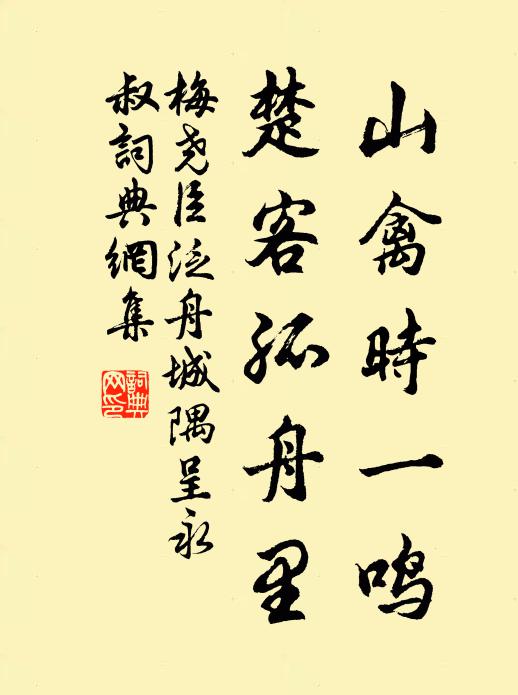 山禽時一鸣
楚客孤舟里
梅尧臣泛舟城隅呈永
叔詞典網集
詞典网印